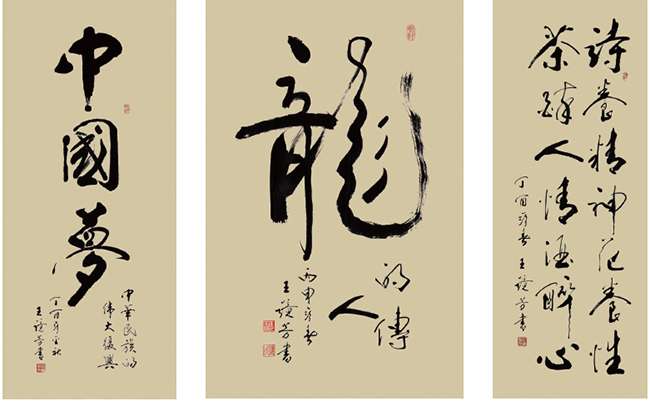 中國夢
中華民族的
偉大復興
丁酉年金秋
王芳書
龍
的傳
人
丙申新春
王芳書
詩養精神花養性
茶醉人情酒醉心
丁酉新春 王芳書